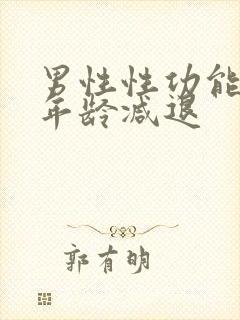 男性性功能
年龄减退
郭有明